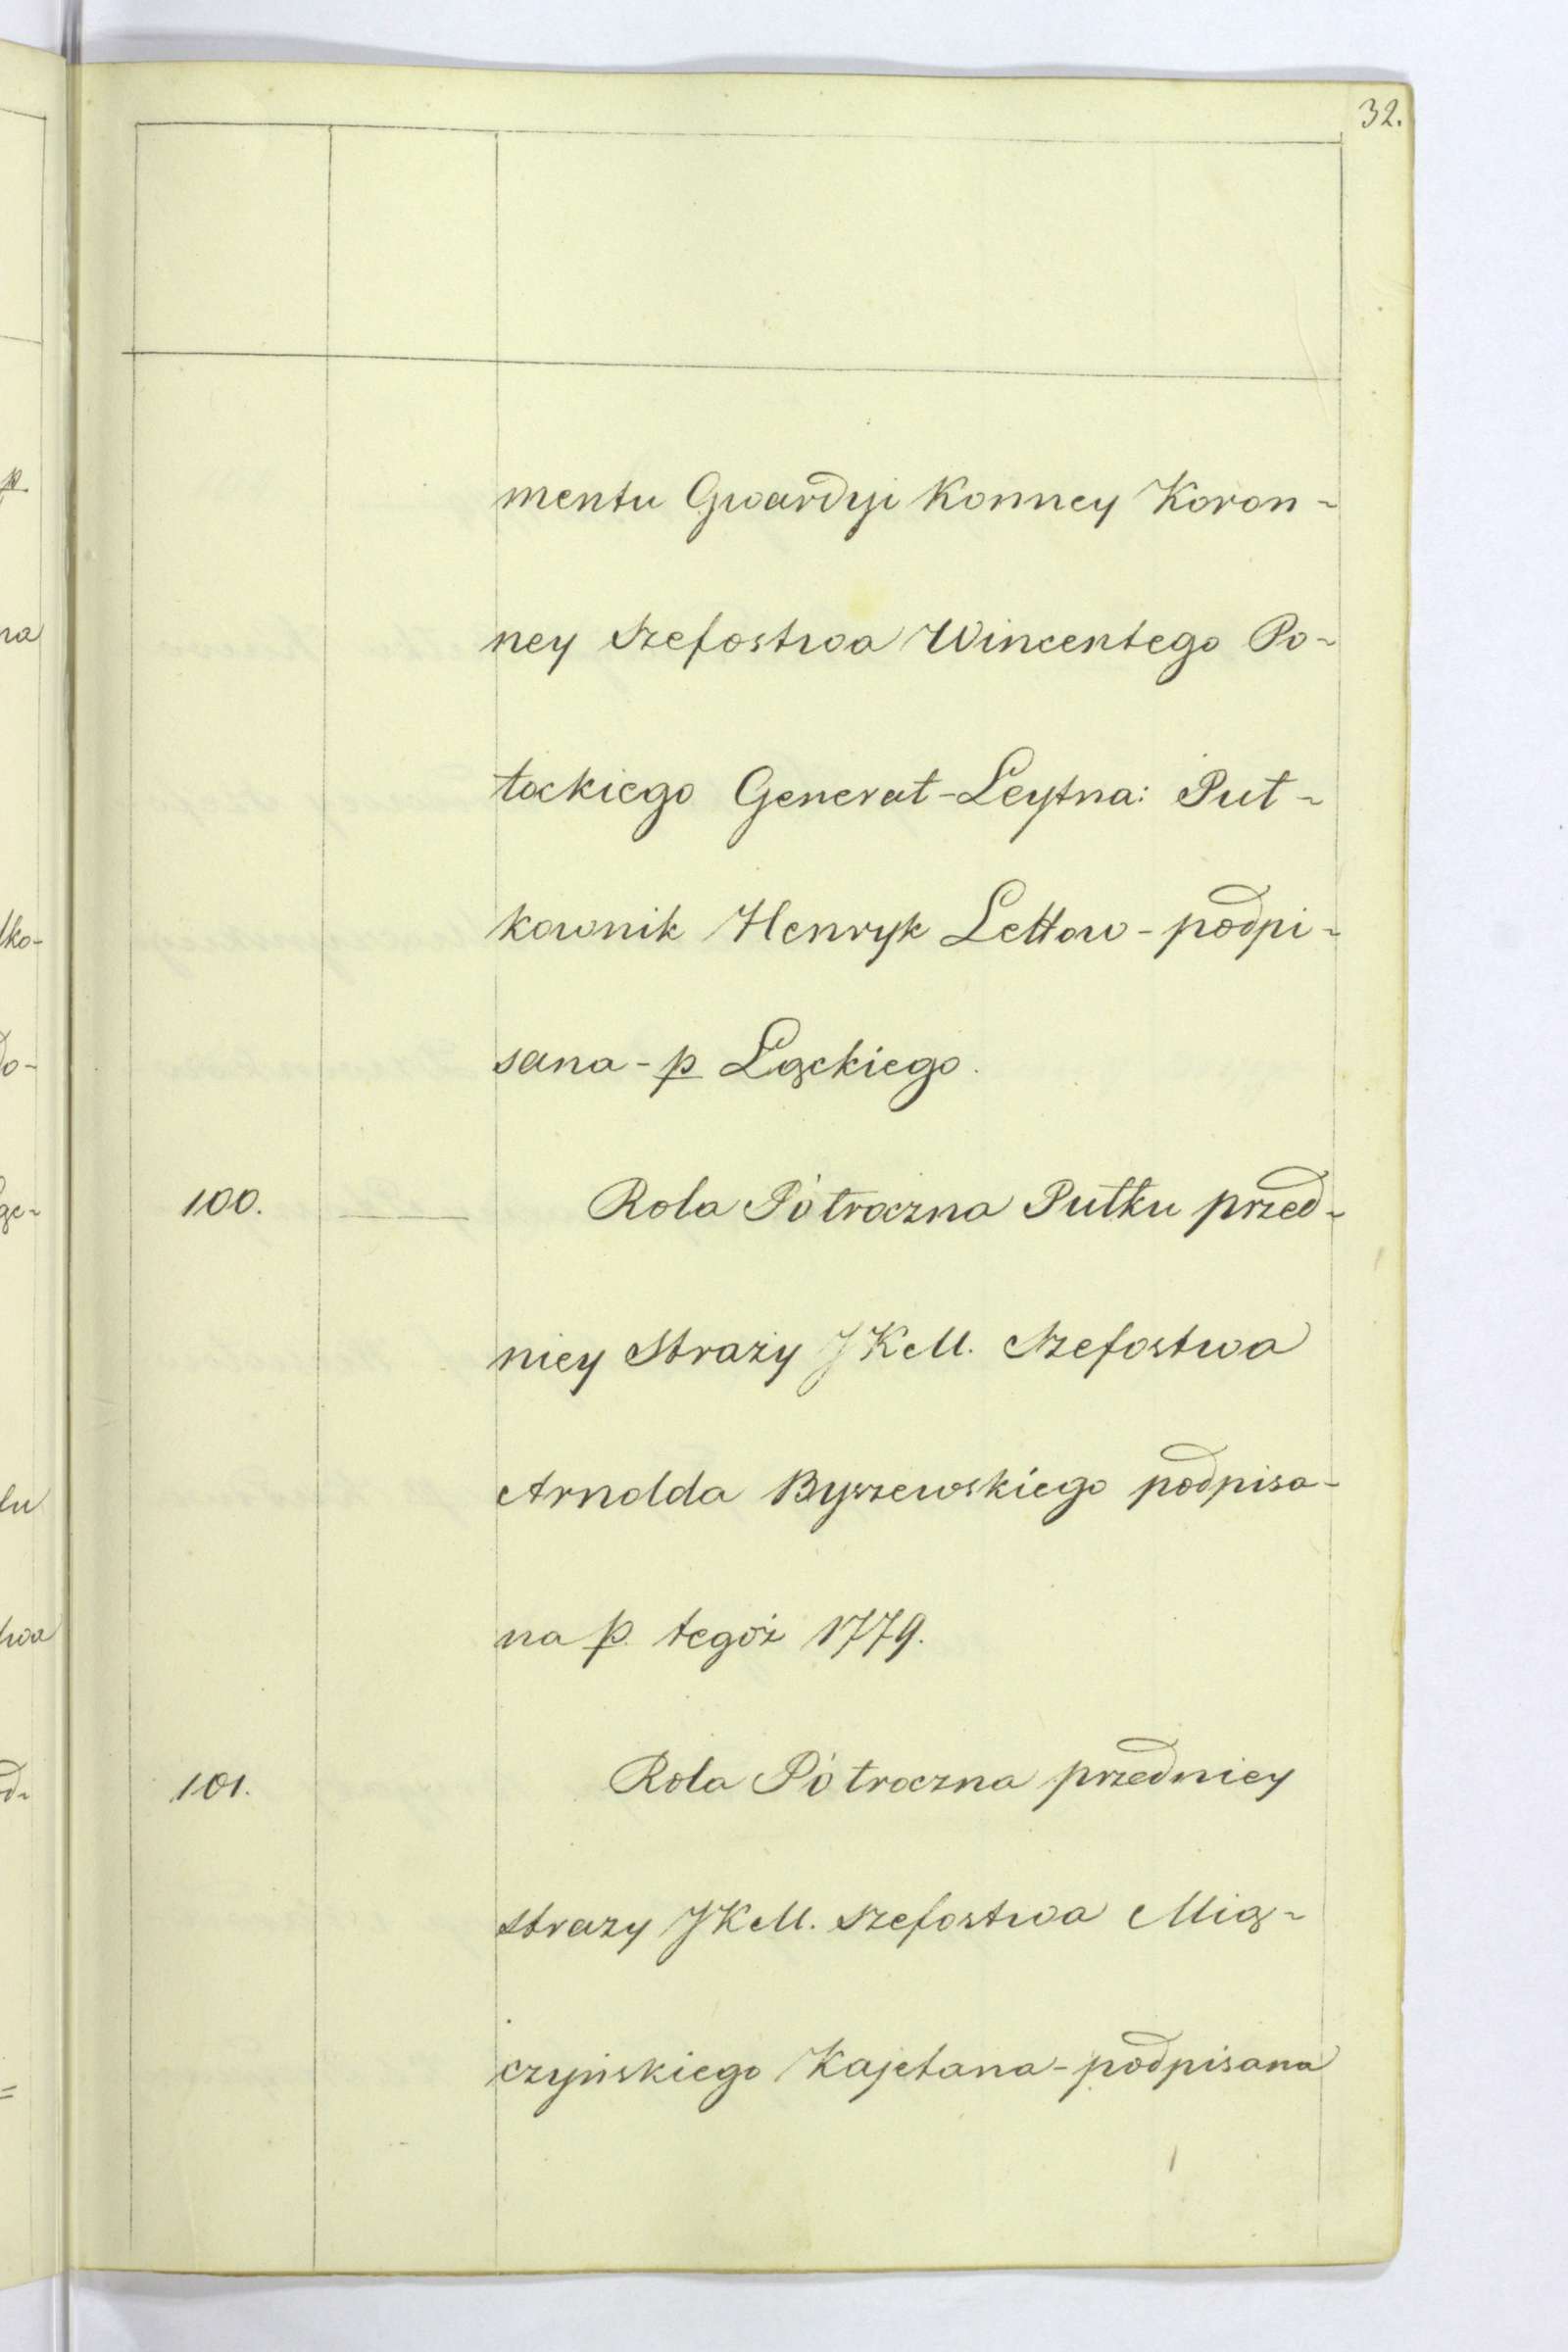 32.
mentu Gwardyi Konney Koron-
ney Szefostwa Wincentego Po-
tockiego Generał-Leytna: Puł-
kownik Henryk Lettow - podpi-
sana - p Łąckiego.
100. — Rola Półroczna Pułku przed-
niey Straży JKM. Szefostwa
Arnolda Byszewskiego podpisa-
na p. tegoż 1779.
101. Rola Półroczna przedniey
straży JKM. szefostwa Mią-
czyńskiego Kajetana - podpisana